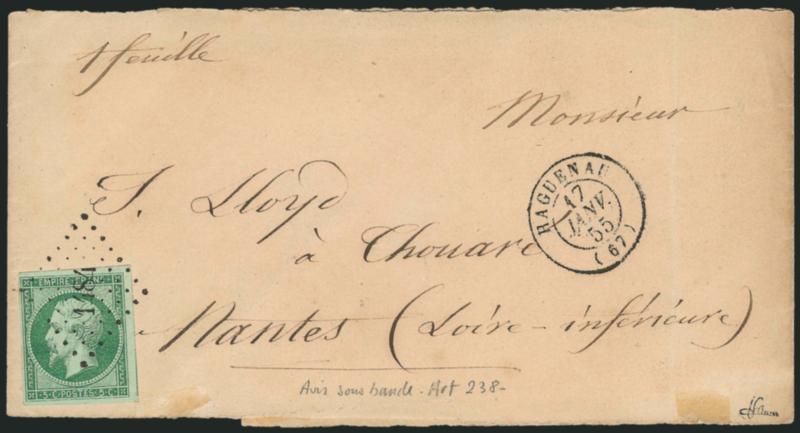 1 feuille
Monsieur
RAGUENAU
17
JANV.
55
(67)
J. Lloyd
à Chouare
Nantes (Loire-inférieure)
EMPIRE FRANC
5·C·POSTES·5·C
Avis sous bande - Art 238-